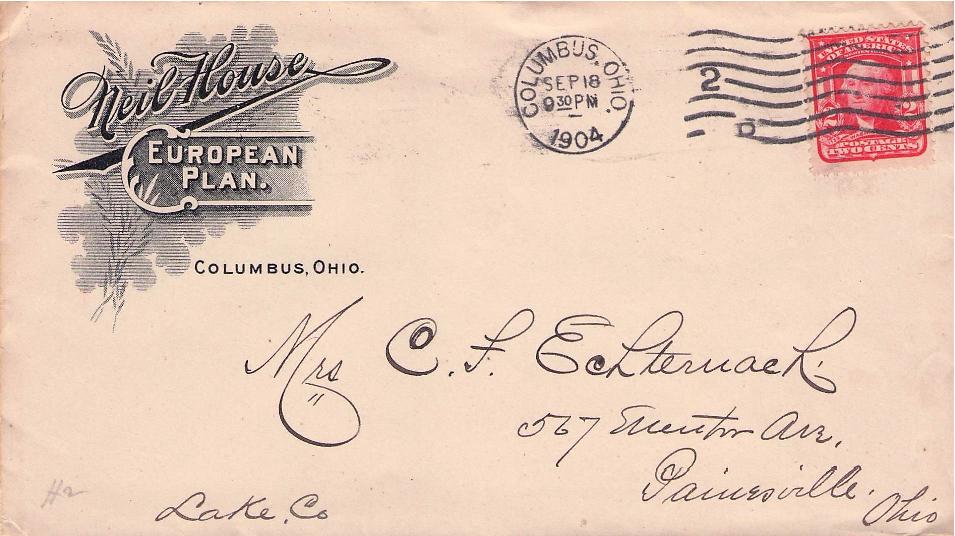 Neil House
EUROPEAN
PLAN.
COLUMBUS, OHIO.
COLUMBUS, OHIO.
SEP 18
9 30 PM
1904
2
D
UNITED STATES
OF AMERICA
2 2
POSTAGE
TWO CENTS
Mrs C. F. Echternach.
567 Mentor Ave,
Painesville.
Ohio
Lake, Co
#2